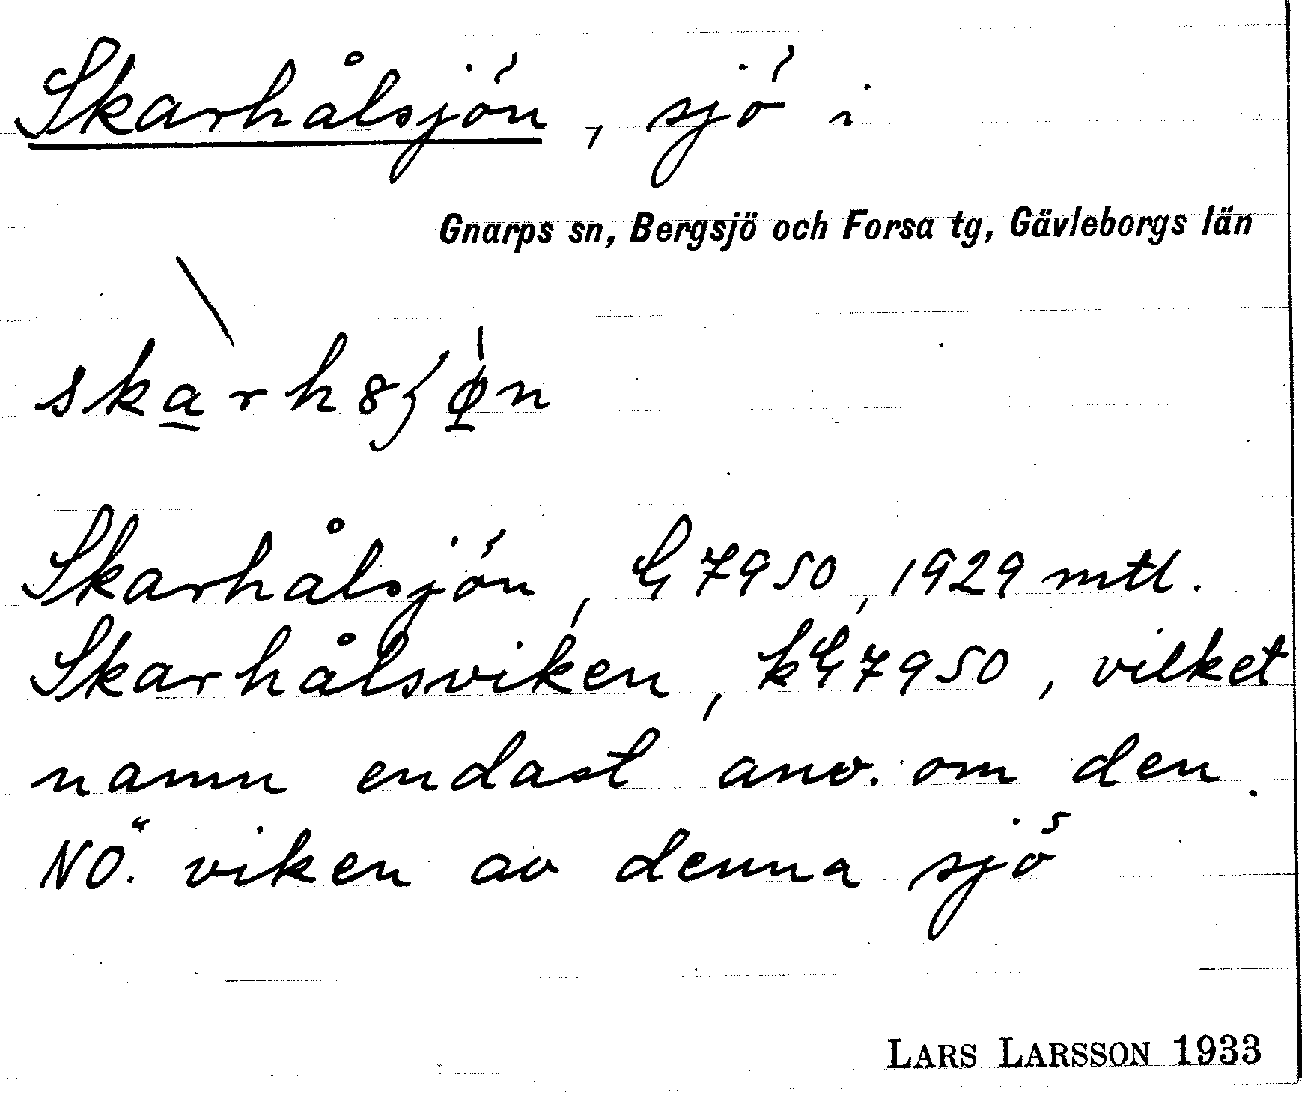 Skarhålsjön, sjö i
Gnarps sn, Bergsjö och Forsa tg, Gävleborgs län
Skarhålsjön, G 7950, 1929 mtl.
Skarhålsviken, kG 7950, vilket
namn endast anv. om den
NÖ. viken av denna sjö
LARS LARSSON 1933